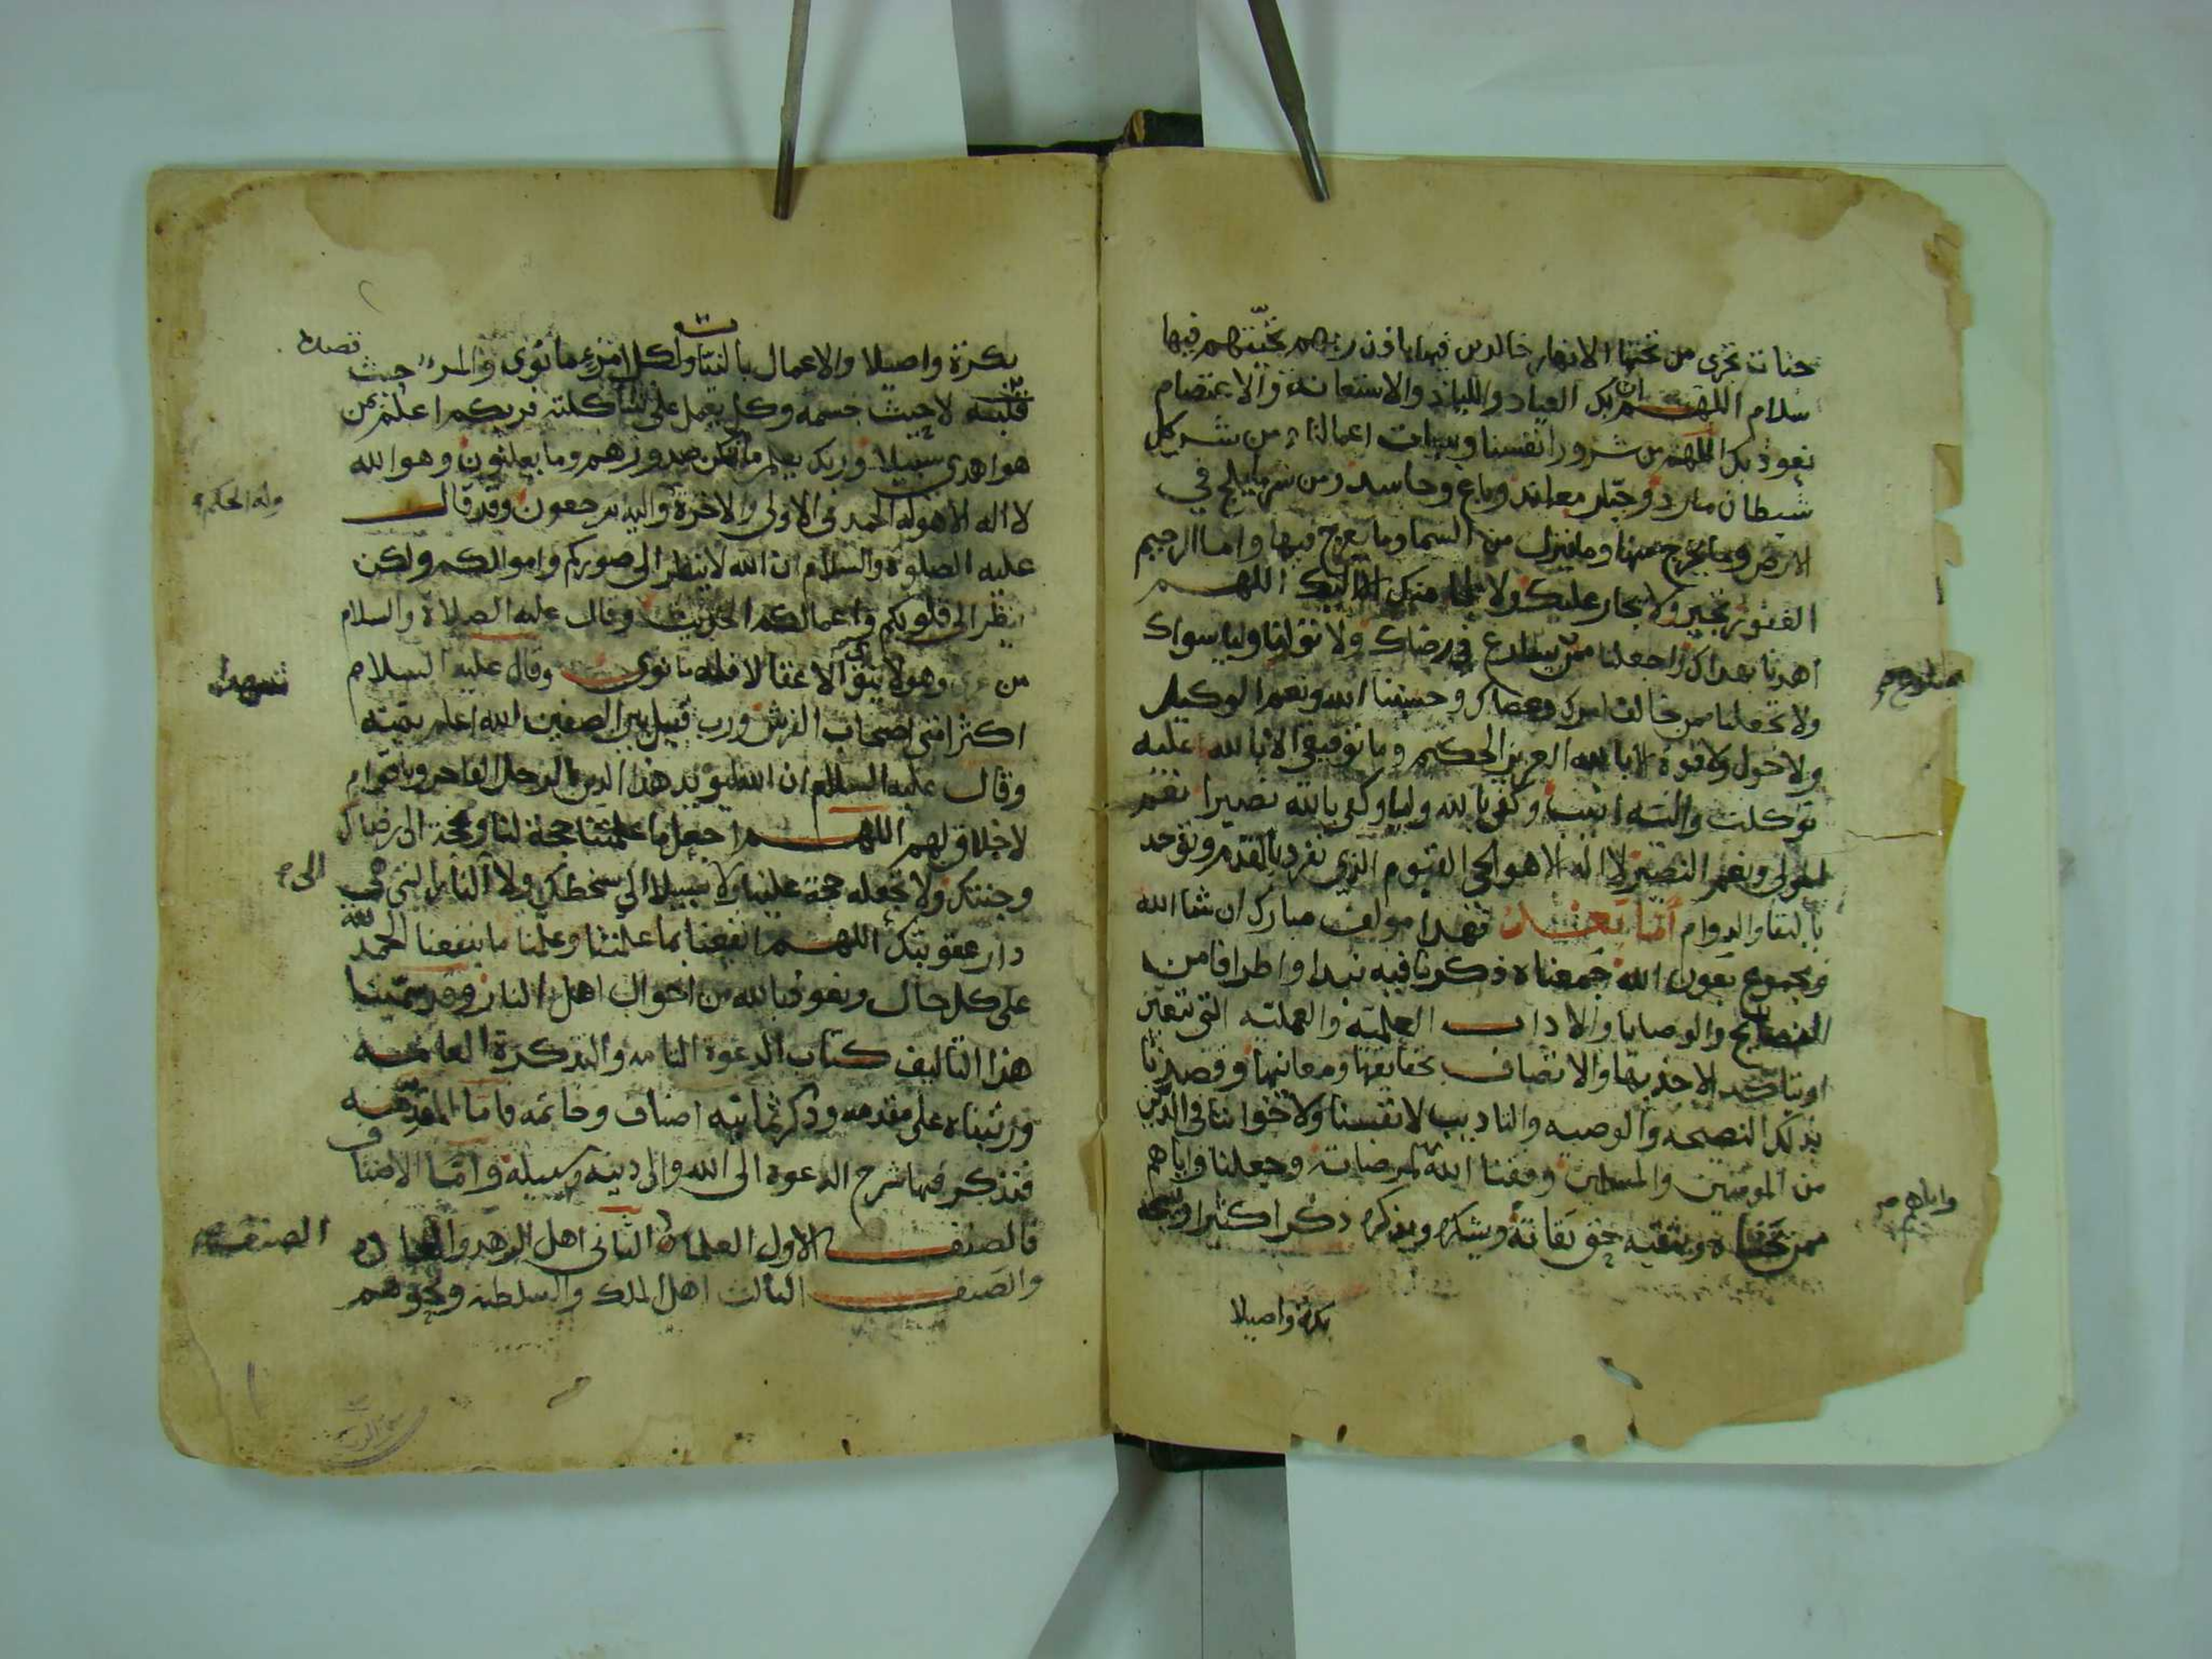 جنات تجرى من تحتها الانهار خالدين فيها باذن ربهم تحيتهم فيها
سلام اللهم ان بك العياذ واللياذ والاستعانة والاعتصام
نعوذ بك اللهم من شرور انفسنا وسيات اعمالنا ومن شر كل
شيطان مارد وجبار معاند وباغ وحاسد ومن شر ما يلج في
الارض وما يخرج منها وما ينزل من السما وما يعرج فيها وانت الرحيم
الغفور تجير ولا يجار عليك ولا ملجا منك الا اليك اللهم
اهدنا بهداك واجعلنا ممن يسارع في رضاك ولا تولنا وليا سواك
ولا تجعلنا ممن خالف امرك وعصاك وحسبنا الله ونعم الوكيل
ولا حول ولا قوة الا بالله العزيز الحكيم وما توفيقي الا بالله عليه
توكلت واليه انيب وكفى بالله وليا وكفى بالله نصيرا نعم
المولى ونعم النصير لا اله الا هو الحي القيوم الذي تفرد بالقدم وتوحد
بالبقا والدوام اما بعد فهذا مولف مبارك ان شا الله
ومجموع بعون الله جمعناه ذكرنا فيه نبذا واطرافا من
النصايح والوصايا والاداب العلمية والعملية التي يتعين
او يتاكد الاخذ بها والاتصاف بحقايقها ومعانيها وقصدنا
بذلك النصيحه والوصيه والتاديب لانفسنا ولاخواننا في الدين
من المومنين والمسلمين وفقنا الله لمرضاته وجعلنا واياهم
واياهم
ممن يخشاه ويتقيه حق تقاته ويشكره ويذكره ذكرا كثيرا ويسبحه
بكرة واصيلا
بكرة واصيلا والاعمال بالنيات ولكل امرء ما نوى والمرء حيث
قلبه لا حيث جسمه وكل يعمل على شاكلته فربكم اعلم بمن
هو اهدى سبيلا وربك يعلم ما تكن صدورهم وما يعلنون وهو الله
لا اله الا هو له الحمد في الاولى والاخرة واليه ترجعون وقد قال
وله الحكم
عليه الصلوة والسلام ان الله لا ينظر الى صوركم واموالكم ولكن
ينظر الى قلوبكم واعمالكم الحديث وقال عليه الصلاة والسلام
من وهو لا ينوي الا عقالا فله ما نوى وقال عليه السلام
اكثر امتى اصحاب الفرش ورب قتيل بين الصفين الله اعلم بنيته
وقال عليه السلام ان الله ليويد هذا الدين بالرجل الفاجر وباقوام
لا خلاق لهم اللهم اجعل ما علمتنا حجة لنا ومحجة الى رضاك
وجنتك ولا تجعله حجة علينا ولا سبيلا الى سخطك ولا النار التي هي
الى
دار عقوبتك اللهم انفعنا بما علمتنا وعلمنا ما ينفعنا الحمد لله
على كل حال ونعوذ بالله من احوال اهل النار وقد سمينا
هذا التاليف كتاب الدعوة التامه والتذكرة العامه
ورتبناه على مقدمه وذكر ثمانيه اصناف وخاتمه فاما المقدمه
فنذكر فيها شرح الدعوة الى الله والى دينه وسبيله واما الاصناف
فالصنف الاول العلما والثاني اهل الزهد والعباده
الصنف
والصنف الثالث اهل الملك والسلطنه ونحوهم